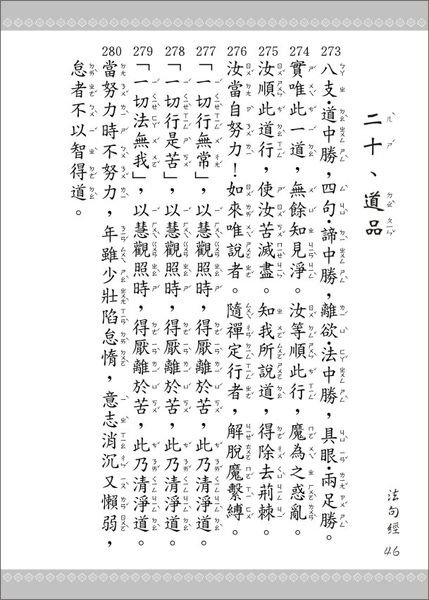 二十、道品
273 八支·道中勝，四句·諦中勝，離欲·法中勝，具眼·兩足勝。
274 實唯此一道，無餘知見淨。汝等順此行，魔為之惑亂。
275 汝順此道行，使汝苦滅盡。知我所說道，得除去荊棘。
276 汝當自努力！如來唯說者。隨禪定行者，解脫魔繫縛。
277 「一切行無常」，以慧觀照時，得厭離於苦，此乃清淨道。
278 「一切行是苦」，以慧觀照時，得厭離於苦，此乃清淨道。
279 「一切法無我」，以慧觀照時，得厭離於苦，此乃清淨道。
280 當努力時不努力，年雖少壯陷怠惰，意志消沉又懶弱，
怠者不以智得道。
法句經 46